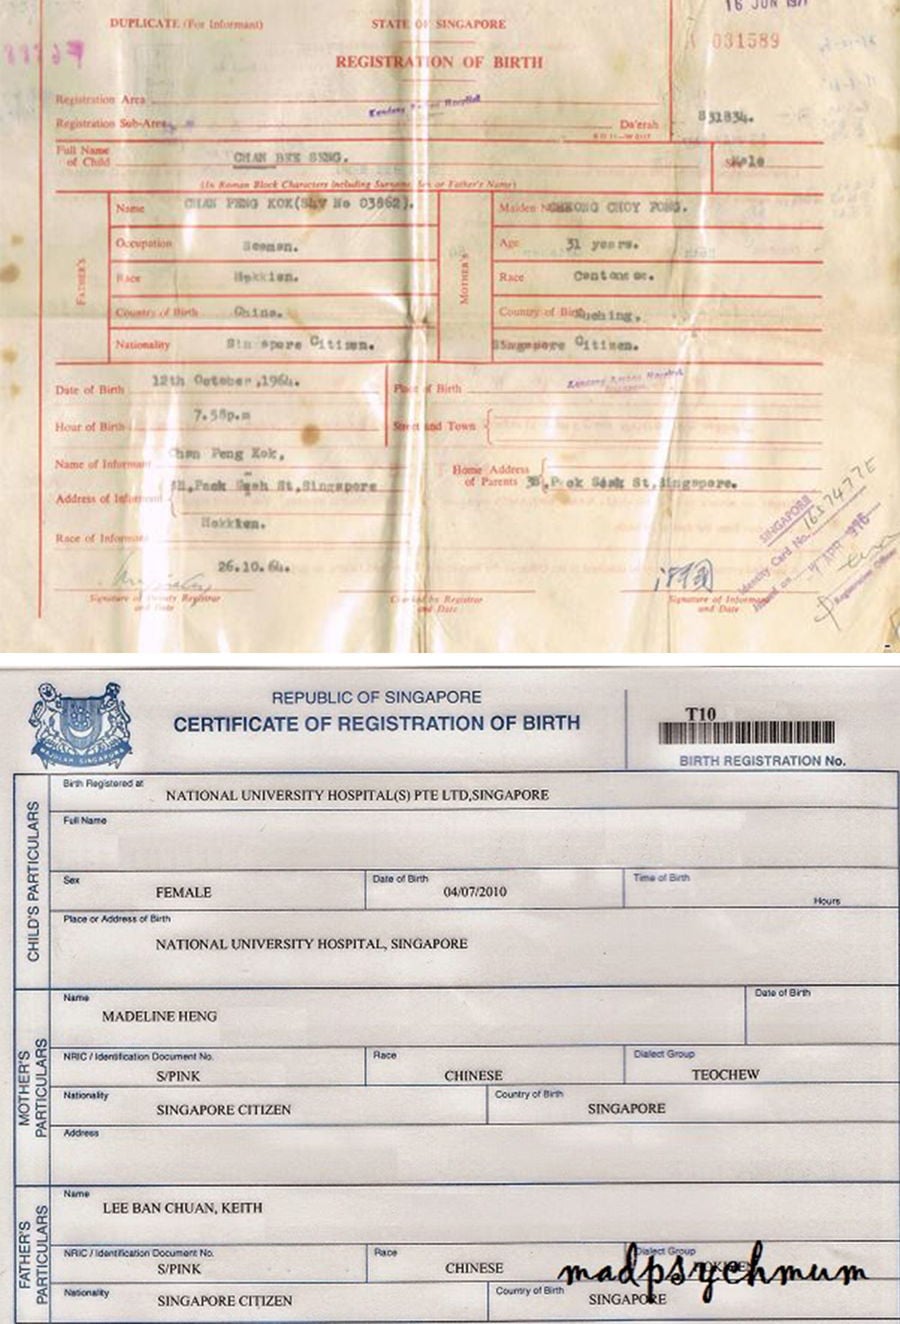 16 JUN 197
DUPLICATE (For Informant)
STATE OF SINGAPORE
031589
REGISTRATION OF BIRTH
Registration Area
Registration Sub-Area
Kandang Kerbau Hospital
Da'erah
831834.
Full Name of Child
CHAN BEE SENG.
Male
(In Roman Block Characters including Surname, Sex or Father's Name)
FATHER'S
Name
CHAN PENG KOK(S/W No 03862).
Occupation
Seaman.
Race
Hokkien.
Country of Birth
China.
Nationality
Singapore Citizen.
MOTHER'S
Maiden
CHEONG CHOY FONG.
Age
31 years.
Race
Cantonese.
Country of Birth
Kuching.
Singapore Citizen.
Date of Birth
12th October,1964.
Hour of Birth
7.58p.m
Place of Birth
Kandang Kerbau Hospital,
Street and Town
Name of Informant
Chan Peng Kok,
Address of Informant
Peck Seah St,Singapore
Home Address of Parents
Peck Seah St,Singapore.
Race of Informant
Hokkien.
26.10.64.
Signature of Deputy Registrar and Date
Checked by Registrar and Date
Signature of Informant and Date
SINGAPORE
Identity Card No. 1657477E
Issued on
APR 1976
Registration Officer
REPUBLIC OF SINGAPORE
CERTIFICATE OF REGISTRATION OF BIRTH
MAJULAH SINGAPURA
T10
BIRTH REGISTRATION No.
CHILD'S PARTICULARS
Birth Registered at
NATIONAL UNIVERSITY HOSPITAL(S) PTE LTD,SINGAPORE
Full Name
Sex
FEMALE
Date of Birth
04/07/2010
Time of Birth
Hours
Place or Address of Birth
NATIONAL UNIVERSITY HOSPITAL, SINGAPORE
MOTHER'S PARTICULARS
Name
MADELINE HENG
Date of Birth
NRIC / Identification Document No.
S/PINK
Race
CHINESE
Dialect Group
TEOCHEW
Nationality
SINGAPORE CITIZEN
Country of Birth
SINGAPORE
Address
FATHER'S PARTICULARS
Name
LEE BAN CHUAN, KEITH
NRIC / Identification Document No.
S/PINK
Race
CHINESE
Dialect Group
HOKKIEN
Nationality
SINGAPORE CITIZEN
Country of Birth
SINGAPORE
madpsychmum